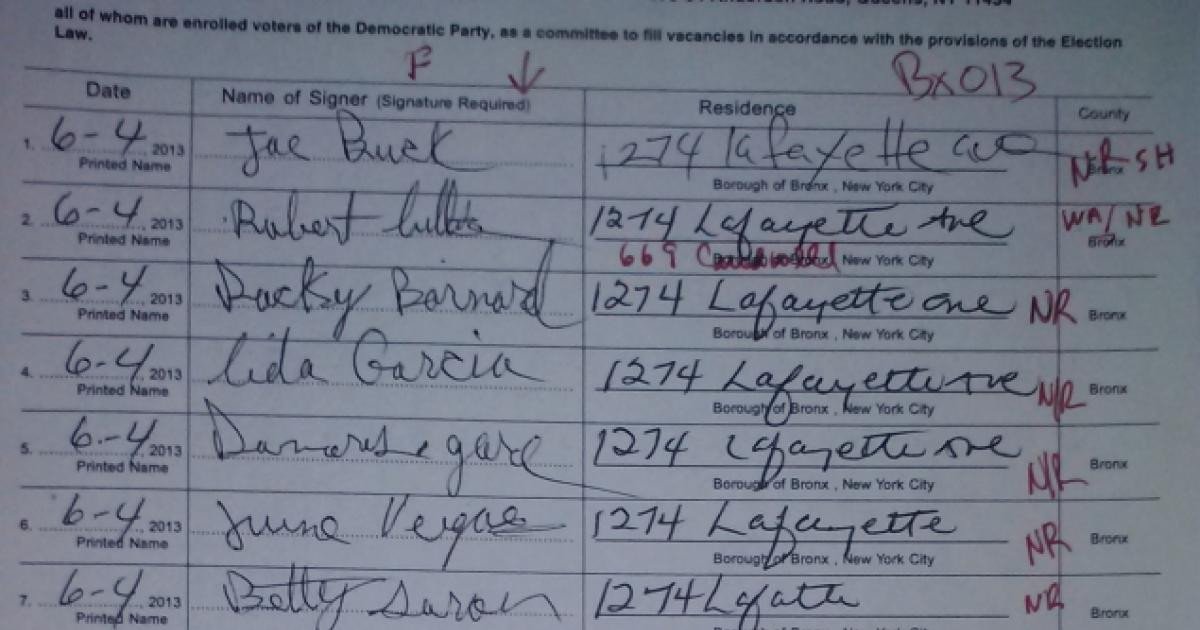 all of whom are enrolled voters of the Democratic Party, as a committee to fill vacancies in accordance with the provisions of the Election
Law.
F ↓ Bx013
Date Name of Signer (Signature Required) Residence County
1. 6-4 2013 Jae Buck 1274 Lafayette ave NR SH
Printed Name Borough of Bronx , New York City Bronx
2. 6-4 2013 Robert 1274 Lafayette Ave WA/ NR
Printed Name 669 New York City Bronx
3. 6-4 2013 Barnard 1274 Lafayette ave NR Bronx
Printed Name Borough of Bronx , New York City
4. 6-4 2013 Lida Garcia 1274 Lafayette Ave N/R Bronx
Printed Name Borough of Bronx , New York City
5. 6-4 2013 1274 Lafayette Ave N/R Bronx
Printed Name Borough of Bronx , New York City
6. 6-4 2013 1274 Lafayette NR Bronx
Printed Name Borough of Bronx , New York City
7. 6-4 2013 Betty 1274 NR Bronx
Printed Name Borough of Bronx , New York City